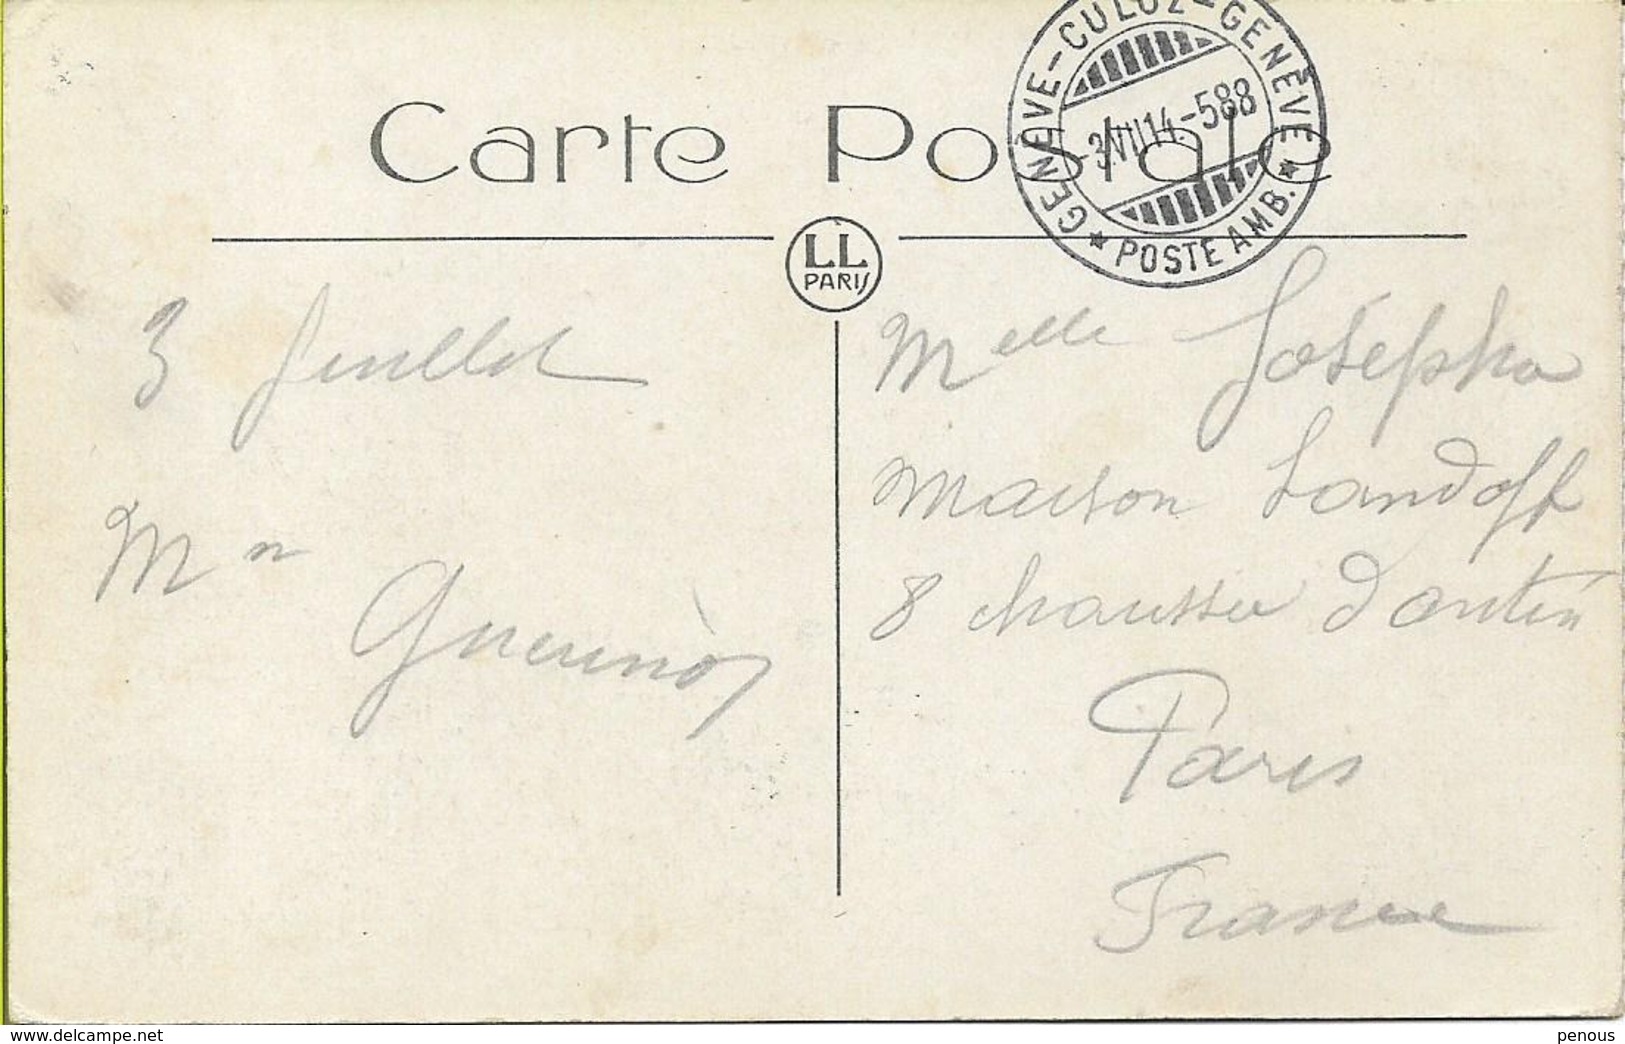 GENÈVE-CULOZ-GENÈVE
-3.VII14-588
POSTE AMB.
Carte Postale
LL
PARIS
3 Juillet
Melle Josépha
maison Landoff
8 chaussee d'antin
Paris
France
Mn
https://www.delcampe.net
penous